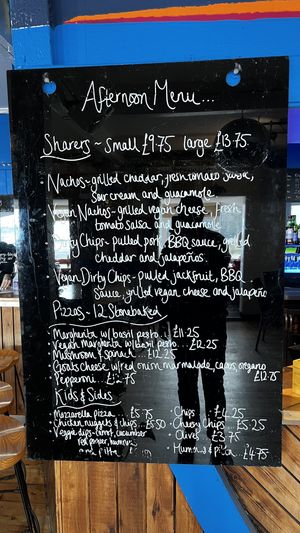 Afternoon Menu...
Sharers ~ Small £9.75 large £13.75
Nachos - grilled cheddar, fresh tomato salsa,
sour cream and guacamole
Vegan Nachos - grilled vegan cheese, fresh
tomato salsa and guacamole
Dirty Chips - pulled pork, BBQ sauce, grilled
cheddar and jalapeños.
Vegan Dirty Chips - pulled jackfruit, BBQ
sauce, grilled vegan cheese and jalapeño
Pizzas - 12" Stonebaked
Margherita w/ basil pesto.. £11.25
Vegan margherita w/ basil pesto... £12.25
Mushroom & spinach... £12.25
Goats cheese w/ red onion marmalade, capers, oregano
£12.75
Pepperoni...
Kids & Sides
Mozzarella pizza.... £5.75
Chicken nuggets & chips.. £5.50
Veggie dips - carrot, cucumber
red pepper, humus
and pitta
• Chips... £4.25
• Cheesy Chips... £5.25
• Olives... £3.75
• Humus & pitta...
£4.75